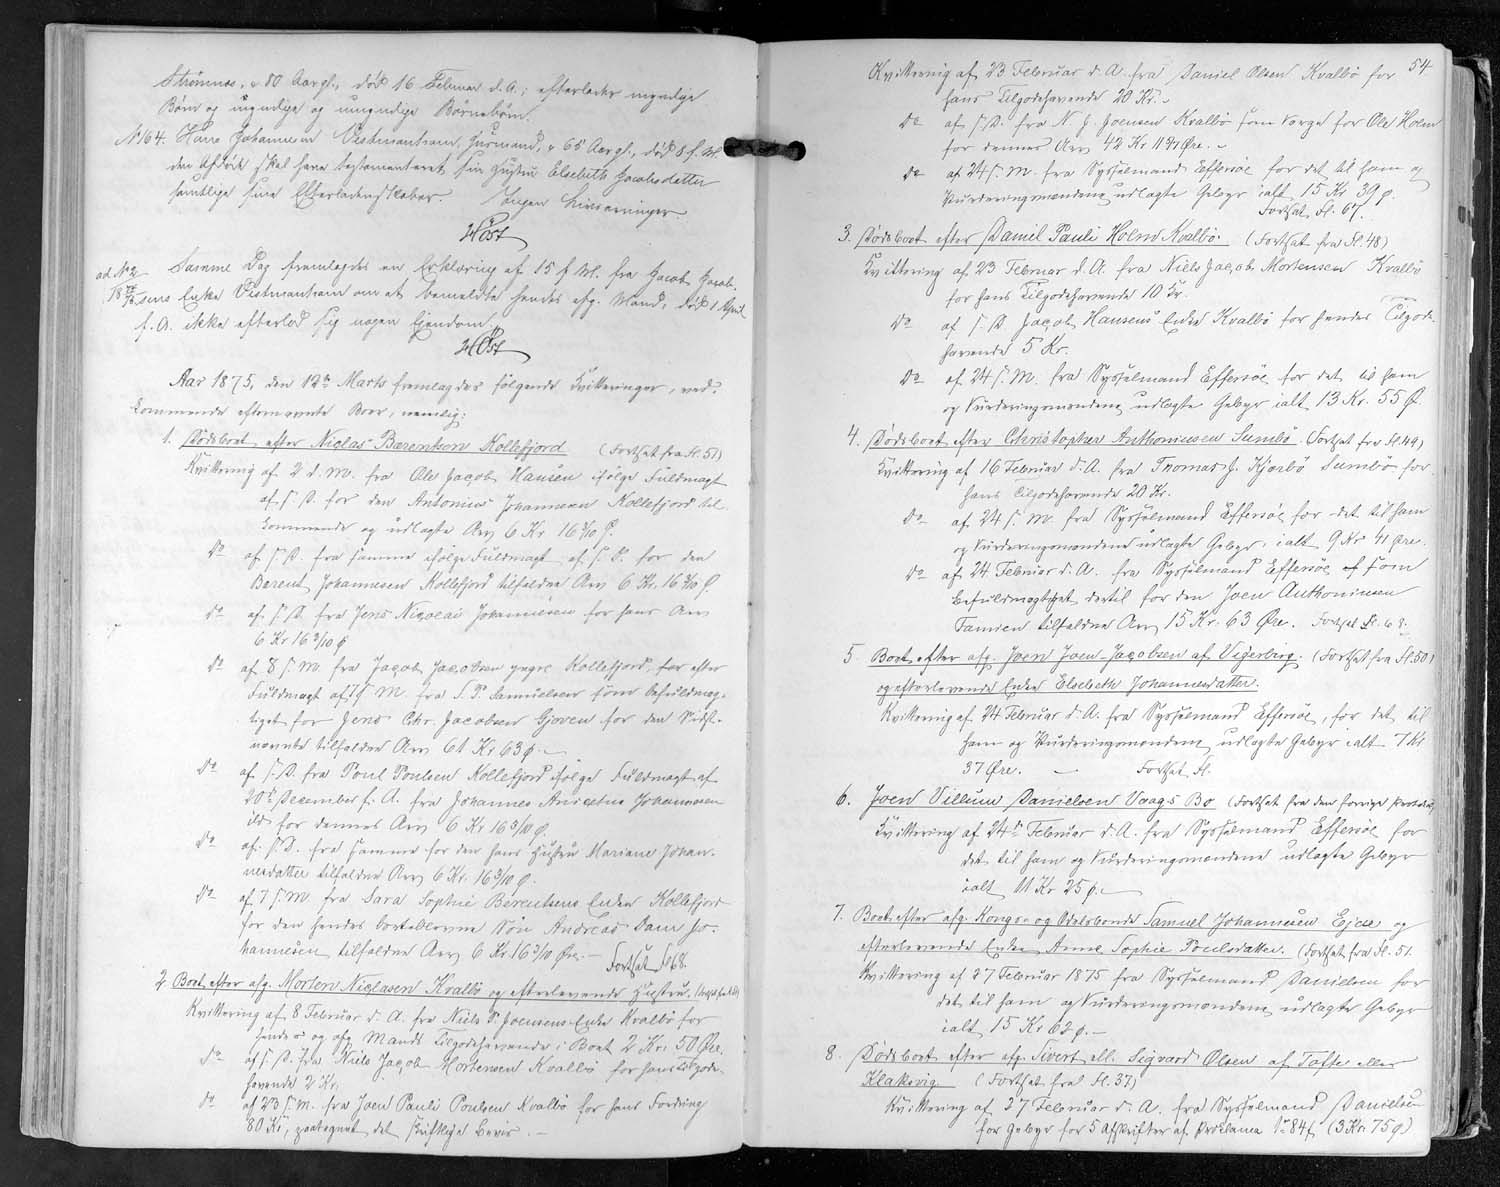 Strömnes, v. 80 Aar gl., död 16 Februar d. A.; efterlader myndige
Börn og myndige og umyndige Börnebörn.
No 164. Hans Johannesen Vestmanhavn, Huusmand, v 65 Aar gl., död 8 f. M.
den Afdöde skal have testamenteret sin Hustru Elsebeth Jacobsdatter
samtlige sine Efterladenskaber. Ingen Livsarvinger.
HÖst
ad No 2 Samme Dag fremlagdes en Erklæring af 15 f. M. fra Jacob Jacob-
sens Enke Vestmanhavn om at bemeldte hendes afg. Mand, död 1 April
f. A. ikke efterlod sig nogen Eiendom.
HÖst
Aar 1875, den 12te Marts fremlagdes fölgende Kvitteringer, ved-
kommende efternævnte Boer, nemlig:
1. Dödsboet efter Niclas Barentsen Kollefjord (Fortsat fra Fl. 51)
Kvittering af 2 d. M. fra Ole Jacob Hansen ifölge Fuldmagt
af s. D. for den Antonius Johannesen Kollefjord til-
kommende og udlagte Arv 6 Kr 16 3/10 Ø.
Do af s. D. fra samme ifölge Fuldmagt af s. D. for den
Berent Johannesen Kollefjord tilfaldne Arv 6 Kr. 16 3/10 Ø.
Do af s. D. fra Jens Nicolai Johannesen for hans Arv
6 Kr 16 3/10 Ø
Do af 8 s. M. fra Jacob Jacobsen yngre Kollefjord, for efter
Fuldmagt af s. M. fra S. P. Samuelsen som befuldmæg-
tiget for Jens Chr. Jacobsen Gjoven for den Sidst-
nævnte tilfaldne Arv 61 Kr 63 ø.
Do af s. D. fra Poul Poulsen Kollefjord ifölge Fuldmagt af
20de December f. A. fra Johannes Anicetus Johannesen
for dennes Arv 6 Kr 16 3/10 Ø.
Do af s. D. fra samme for den hans Hustru Mariane Johan-
nesdatter tilfaldne Arv 6 Kr. 16 3/10 Ø.
Do af 7 s. M. fra Sara Sophie Berentsens Enke Kollefjord
for den hendes Sön Andreas Dam Jo-
hannesen tilfaldne Arv 6 Kr 16 3/10 Øre. Fortsat f 68.
2 Boet efter afg. Morten Niclasen Kvalbö og efterlevende Hustru.
Kvittering af 8 Februar d. A. fra Niels P. Joensens Enke Kvalbö for
hendes og afg. Mands Tilgodehavende i Boet 2 Kr. 50 Øre.
Do af s. D. fra Niels Jacob Mortensen Kvalbö for hans Tilgode-
havende 2 Kr.
Do af 23 s. M. fra Joen Pauli Poulsen Kvalbö for hans Fordring
80 Kr, paategnet det skriftlige Bevis.
54
Kvittering af 23 Februar d. A. fra Daniel Olsen Kvalbö for
hans Tilgodehavende 20 Kr.
Do af s. D. fra N. J. Joensen Kvalbö som Værge for Ole Holm
for dennes Arv 42 Kr Øre.
Do af 24 s. M. fra Sysselmand Effersöe for det til ham og
Vurderingsmændene udlagte Gebyr ialt 15 Kr 39 ø.
Fortsat Fl. 67.
3. Dödsboet efter Daniel Pauli Holm Kvalbö. (Fortsat fra Fl. 48)
Kvittering af 23 Februar d. A. fra Niels Jacob Mortensen Kvalbö
for hans Tilgodehavende 10 Kr.
Do af s. D. Jacob Hansens Enke Kvalbö for hendes Tilgode-
havende 5 Kr.
Do af 24 s. M. fra Sysselmand Effersöe for det til ham
og Vurderingsmændene udlagte Gebyr ialt 13 Kr. 55 Ø.
4. Dödsboet efter Christopher Anthoniusen Sumbö. (Fortsat fra Fl. 49)
Kvittering af 16 Februar d. A. fra Thomas J. Kjørbö Sumbö for
hans Tilgodehavende 20 Kr.
Do af 24 s. M. fra Sysselmand Effersöe for det til ham
og Vurderingsmændene udlagte Gebyr, ialt 9 Kr 41 Øre.
Do af 24 Februar d. A. fra Sysselmand Effersöe som
befuldmægtiget dertil for den Joen Anthoniusen
Famien tilfaldne Arv 15 Kr. 63 Øre. Fortsat Fl. 68.
5. Boet efter afg. Joen Joen-Jacobsen af Vigerbirg. (Fortsat fra Fl. 50)
og efterlevende Enke Elsebeth Johannesdatter.
Kvittering af 24 Februar d. A. fra Sysselmand Effersöe, for det til
ham og Vurderingsmændene udlagte Gebyr ialt 7 Kr
37 Øre. Fortsat Fl.
6. Joen Villum Danielsen Vaags Bo (Fortsat fra den forrige Protokol)
Kvittering af 24de Februar d. A. fra Sysselmand Effersöe for
det til ham og Vurderingsmændene udlagte Gebyr
ialt 11 Kr 25 ø.
7. Boet efter afg. Kongs- og Odelsbonde Samuel Johannesen Ejde og
efterlevende Enke Anne Sophie Poulsdatter. (Fortsat fra Fl. 51.
Kvittering af 27 Februar 1875 fra Sysselmand Danielsen for
det til ham og Vurderingsmændene udlagte Gebyr
ialt 15 Kr 62 ø.
8. Dödsboet efter afg. Sivert ell. Sigvard Olsen af Tofte eller
Klaksvig. (Fortsat fra Fl. 37)
Kvittering af 27 Februar d. A. fra Sysselmand Danielsen
for Gebyr for 5 Afskrifter af Proklama (3 Kr. 75 ø)